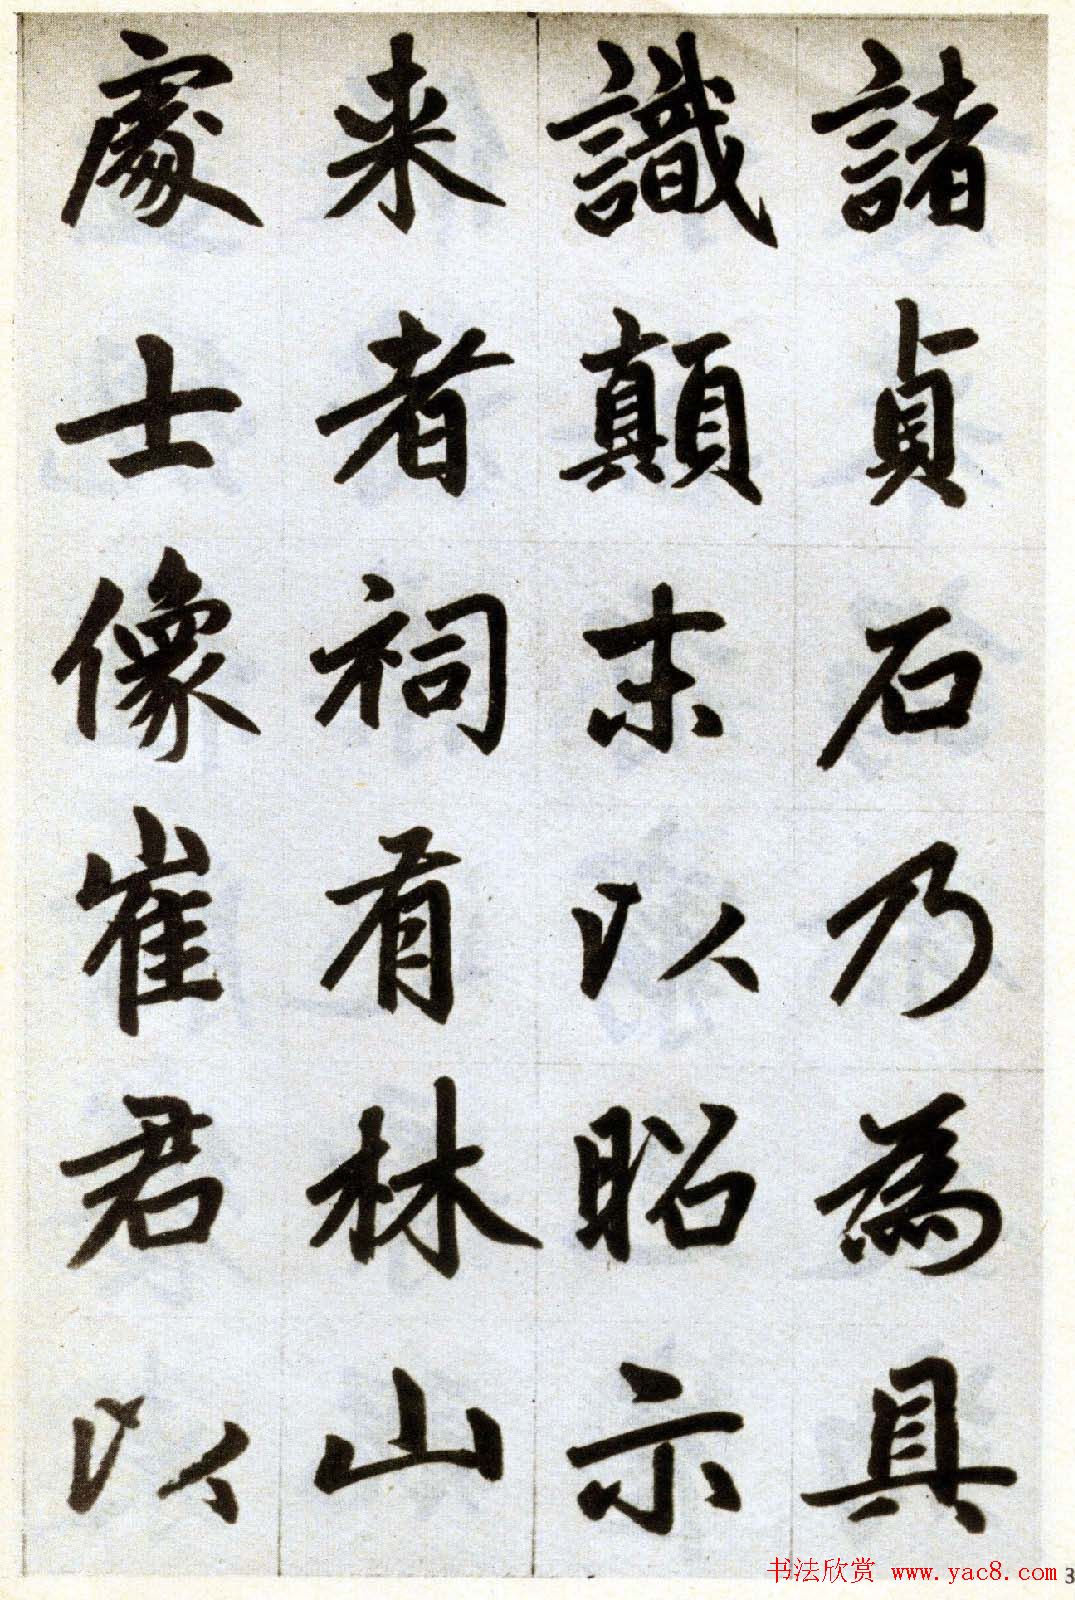 諸貞石乃為具
識顛末以昭示
来者祠有林山
處士像崔君以
书法欣赏 www.yac8.com 3